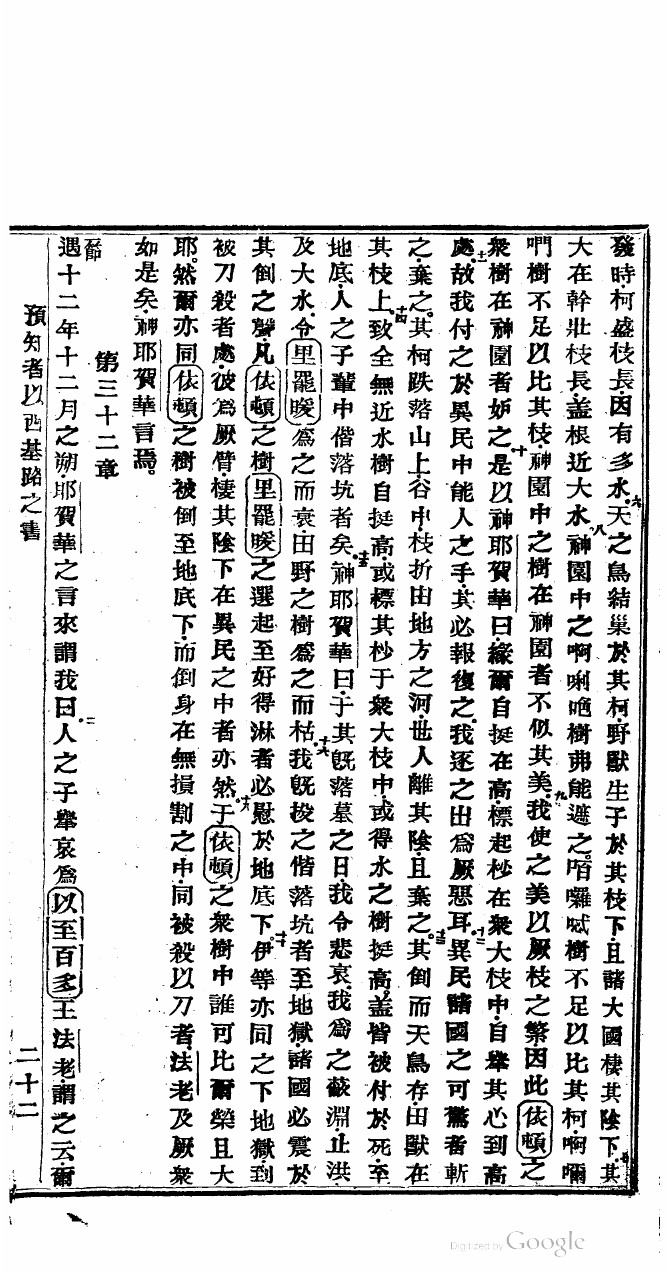 發時柯盛枝長因有多水六天之鳥結巢於其柯野獸生子於其枝下且諸大國棲其陰下七其
大在幹壯枝長蓋根近大水八神園中之啊唎𠹌樹弗能遮之咟囉𠵽樹不足以比其柯啊嚸
啊樹不足以比其枝神園中之樹在神園者不似其美九我使之美以厥枝之繁因此依頓之
衆樹在神園者妒之十是以神耶賀華曰緣爾自挺在高標起杪在衆大枝中自舉其心到高
處十一故我付之於異民中能人之手其必報復之我逐之出爲厥惡耳十二異民諸國之可驚者斬
之棄之其柯跌落山上谷中枝折由地方之河世人離其陰且棄之十三其倒而天鳥存田獸在
其枝上十四致全無近水樹自挺高或標其杪于衆大枝中或得水之樹挺高蓋皆被付於死至
地底人之子輩中偕落坑者矣十五神耶賀華曰于其旣落墓之日我令悲哀我爲之蔽淵止洪
及大水令里罷㬉爲之而哀田野之樹爲之而枯十六我旣投之偕落坑者至地獄諸國必震於
其倒之聲凡依頓之樹里罷㬉之選起至好得淋者必慰於地底下十七伊等亦同之下地獄到
被刀殺者處彼爲厥臂棲其陰下在異民之中者亦然十八于依頓之衆樹中誰可比爾榮且大
耶然爾亦同依頓之樹被倒至地底下而倒身在無損割之中同被殺以刀者法老及厥衆
如是矣神耶賀華言焉
第三十二章
一節遇十二年十二月之朔耶賀華之言來謂我曰二人之子舉哀爲以至百多王法老謂之云爾
預知者以西基路之書
二十二
Digitized by Google